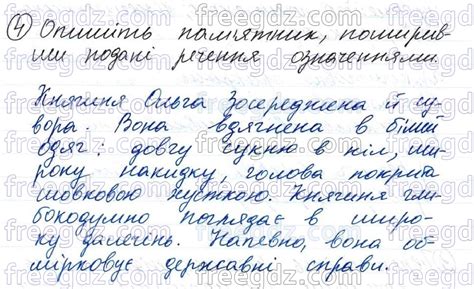 ④ Опишіть пам'ятник, поширив-
ши подані речення означеннями.
Княгиня Ольга зосереджена й су-
вора. Вона вдягнена в білий
одяг: довгу сукню в піл, ши-
року накидку, голова покрита
шовковою хусткою. Княгиня гли-
бокодумно поглядає в широ-
ку далечінь. Напевно, вона об-
мірковує державні справи.